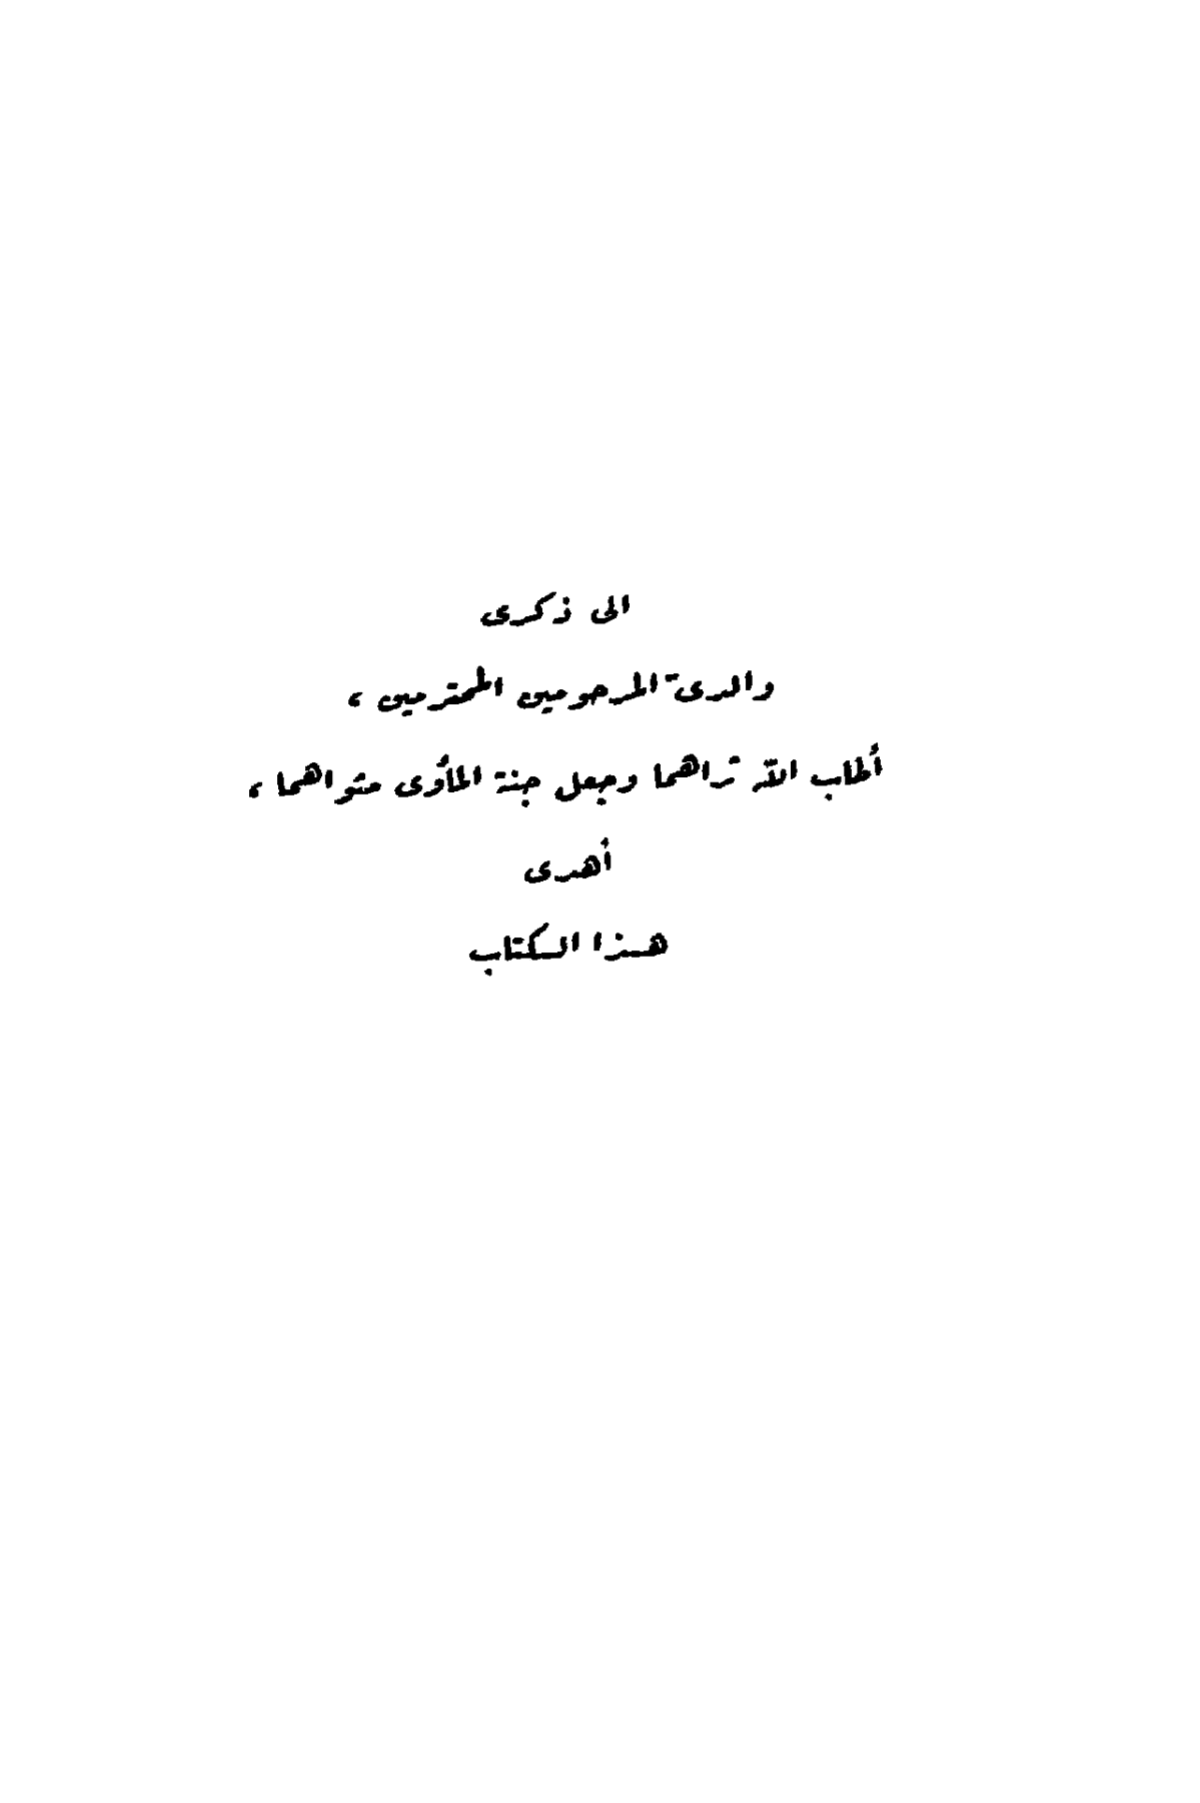 الى ذكرى
والدىّ المرحومين المحترمين ،
أطاب الله ثراهما وجعل جنة المأوى مثواهما ،
أهدى
هذا الكتاب